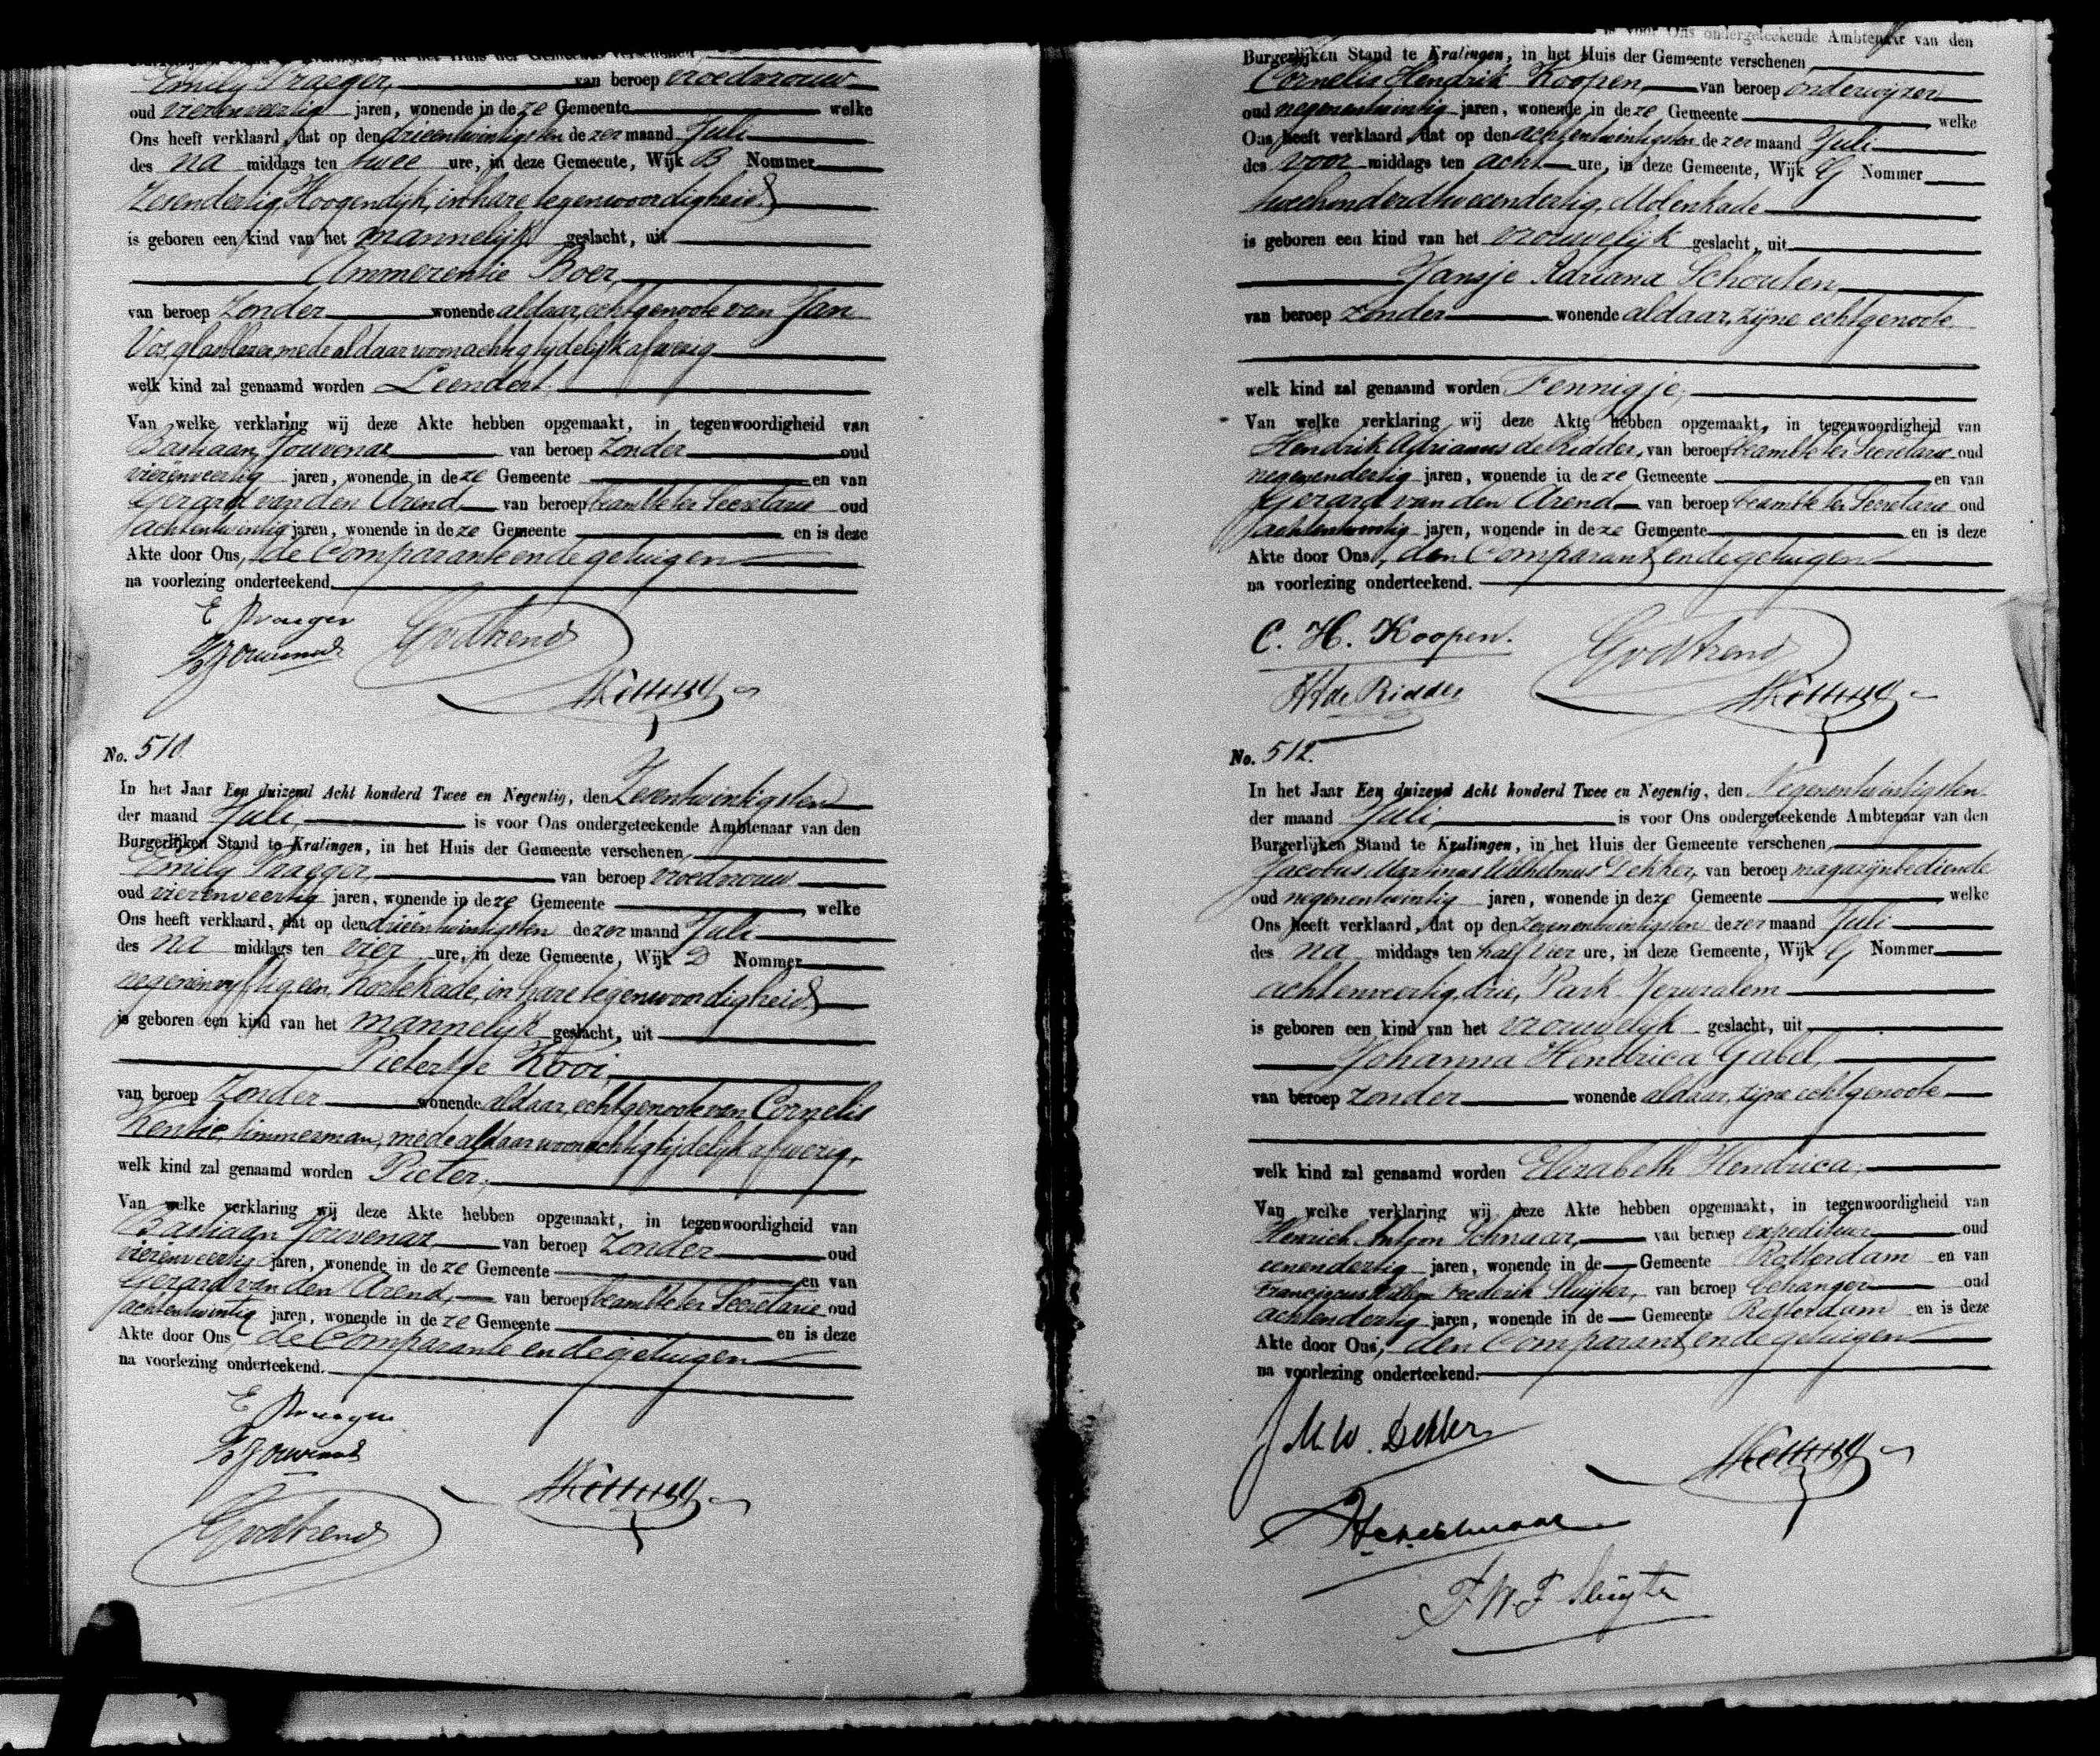 Emily Praeger, van beroep vroedvrouw
oud vierenveertig jaren, wonende in deze Gemeente welke
Ons heeft verklaard, dat op den drieentwintigsten dezer maand Juli
des na middags ten twee ure, in deze Gemeente, Wijk B Nommer
Zesendertig, Hoogendijk, in hare tegenwoordigheid
is geboren een kind van het mannelijk geslacht, uit
Ammerentie Boer,
van beroep Zonder wonende aldaar, echtgenoote van Jan
Vos, glasblazer mede aldaar woonachtig tijdelijk afwezig
welk kind zal genaamd worden Leendert.
Van welke verklaring wij deze Akte hebben opgemaakt, in tegenwoordigheid van
Bastiaan Jouvenaz van beroep Zonder oud
vierenveertig jaren, wonende in deze Gemeente en van
Gerard van den Arend, van beroep beambte ter Secretarie oud
achtentwintig jaren, wonende in deze Gemeente en is deze
Akte door Ons, de Comparante en de getuigen
na voorlezing onderteekend.
E Praeger
GvdArend
No. 510.
In het Jaar Een duizend Acht honderd Twee en Negentig, den Zesentwintigsten
der maand Juli, is voor Ons ondergeteekende Ambtenaar van den
Burgerlijken Stand te Kralingen, in het Huis der Gemeente verschenen
Emily Praeger van beroep vroedvrouw
oud vierenveertig jaren, wonende in deze Gemeente welke
Ons heeft verklaard, dat op den drieentwintigsten dezer maand Juli
des na middags ten vier ure, in deze Gemeente, Wijk D Nommer
negenenvyftig, een, Kortekade, in hare tegenwoordigheid
is geboren een kind van het mannelijk geslacht, uit
Pietertje Kooi,
van beroep Zonder wonende aldaar, echtgenoote van Cornelis
Kentie, timmerman, mede aldaar woonachtig tijdelijk afwezig,
welk kind zal genaamd worden Pieter.
Van welke verklaring wij deze Akte hebben opgemaakt, in tegenwoordigheid van
Bastiaan Jouvenaz, van beroep Zonder oud
vierenveertig jaren, wonende in deze Gemeente en van
Gerard van den Arend, van beroep beambte ter Secretarie oud
achtentwintig jaren, wonende in deze Gemeente en is deze
Akte door Ons, de Comparante en de getuigen
na voorlezing onderteekend.
E Praeger
GvdArend
is voor Ons ondergeteekende Ambtenaar van den
Burgerlijken Stand te Kralingen, in het Huis der Gemeente verschenen
Cornelis Hendrik Koopen, van beroep onderwijzer
oud negenentwintig jaren, wonende in deze Gemeente welke
Ons heeft verklaard, dat op den achtentwintigsten dezer maand Juli
des voor middags ten acht ure, in deze Gemeente, Wijk G Nommer
tweehonderdtweeendertig, Molenkade
is geboren een kind van het vrouwelijk geslacht, uit
Jansje Adriana Schouten,
van beroep zonder wonende aldaar, zijne echtgenoote
welk kind zal genaamd worden Fennigje,
Van welke verklaring wij deze Akte hebben opgemaakt, in tegenwoordigheid van
Hendrik Adrianus de Ridder, van beroep beambte ter Secretarie oud
negenendertig jaren, wonende in deze Gemeente en van
Gerard van den Arend van beroep beambte ter Secretarie oud
achtentwintig jaren, wonende in deze Gemeente en is deze
Akte door Ons, den Comparant en de getuigen
na voorlezing onderteekend.
C. H. Koopen.
GvdArend
HA de Ridder
No. 512.
In het Jaar Een duizend Acht honderd Twee en Negentig, den Negenentwintigsten
der maand Juli, is voor Ons ondergeteekende Ambtenaar van den
Burgerlijken Stand te Kralingen, in het Huis der Gemeente verschenen
Jacobus Martinus Wilhelmus Dekker, van beroep magazijnbediende
oud negenentwintig jaren, wonende in deze Gemeente welke
Ons heeft verklaard, dat op den zevenentwintigsten dezer maand Juli
des na middags ten half vier ure, in deze Gemeente, Wijk G Nommer
achtenveertig, drie, Park Jeruzalem
is geboren een kind van het vrouwelijk geslacht, uit
Johanna Hendrica Gabel,
van beroep zonder wonende aldaar, zijne echtgenoote
welk kind zal genaamd worden Elizabeth Hendrica,
Van welke verklaring wij deze Akte hebben opgemaakt, in tegenwoordigheid van
Heinrich Anton Schnaar, van beroep expediteur oud
eenendertig jaren, wonende in de Gemeente Rotterdam en van
Franciscus Frederik Sluijter, van beroep behanger oud
achtendertig jaren, wonende in de Gemeente Rotterdam en is deze
Akte door Ons, den Comparant en de getuigen
na voorlezing onderteekend.
J M. W. Dekker
F. W. F Sluijter